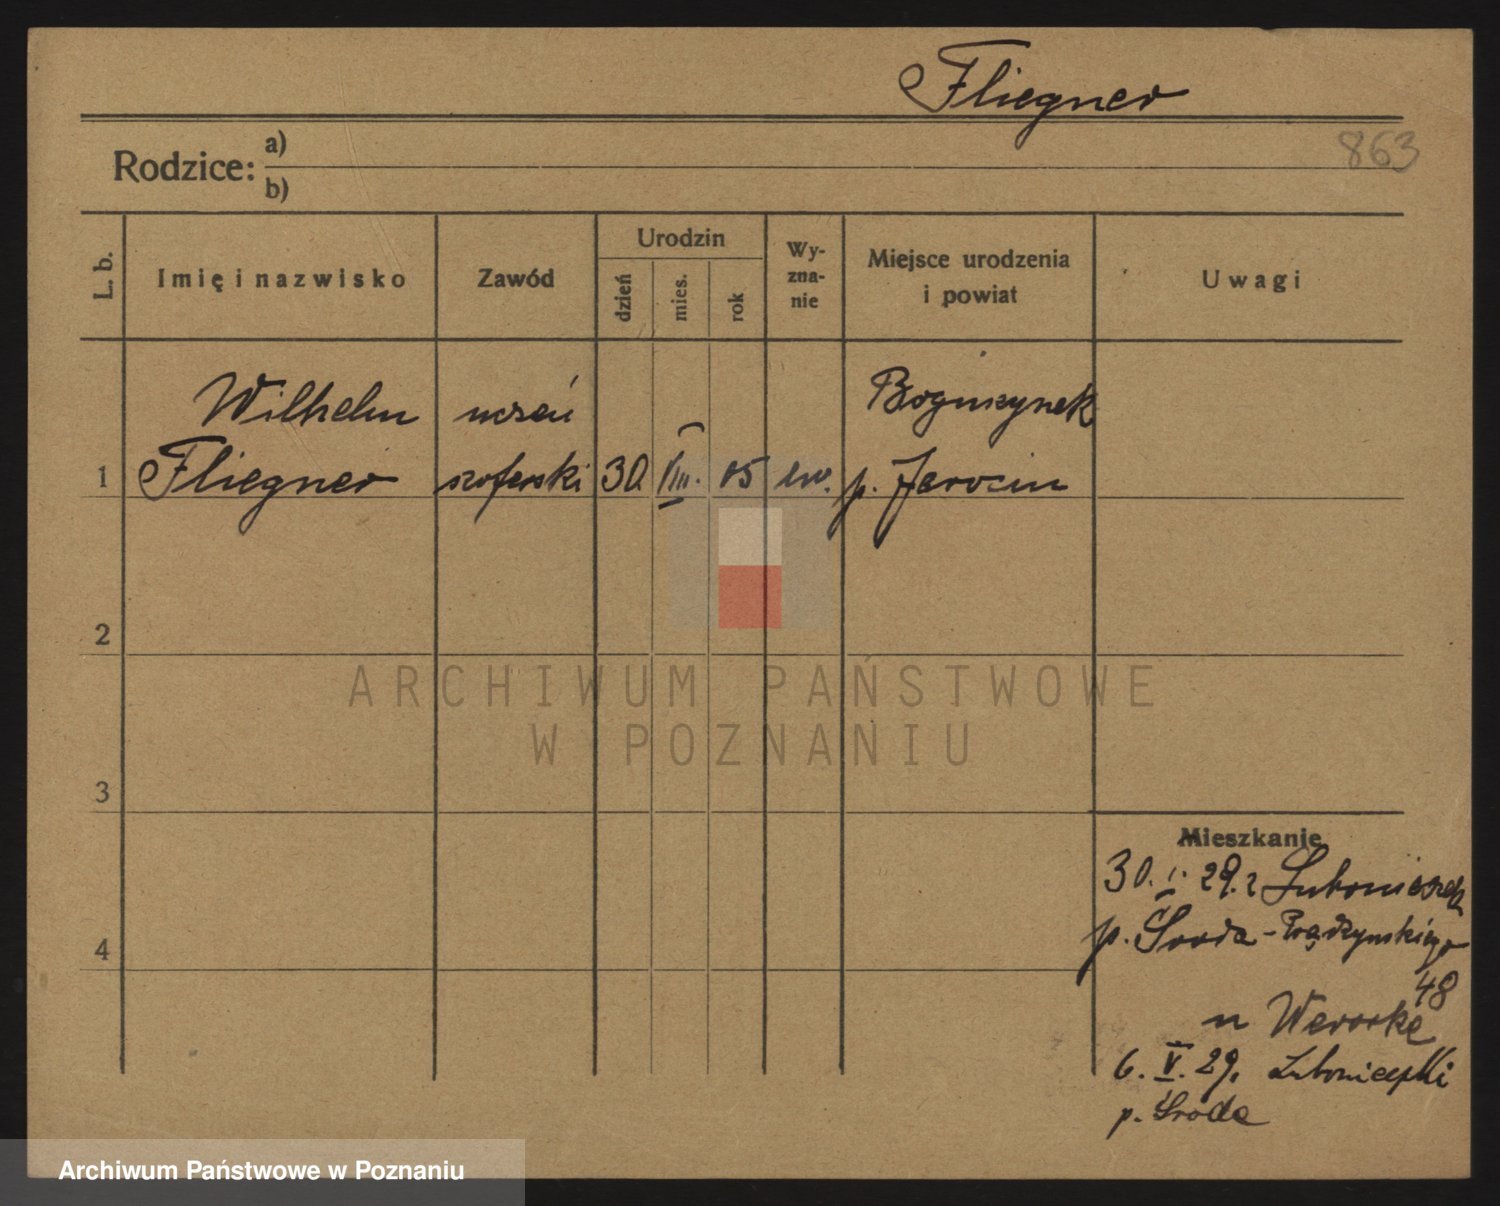 Fliegner
863
Rodzice: a)
b)
L. b.
Imię i nazwisko
Zawód
Urodzin
dzień
mies.
rok
Wy-
zna-
nie
Miejsce urodzenia
i powiat
Uwagi
Wilhelm uczeń Boguszynek
1 Fliegner szoferski 30 VIII. 05 ew. p. Jarocin
2
3
4
Mieszkanie
30. I. 29. z
p. Środa - Prądzyńskiego
48
u
6. V. 29.
p. Środa
ARCHIWUM PAŃSTWOWE
W POZNANIU
Archiwum Państwowe w Poznaniu